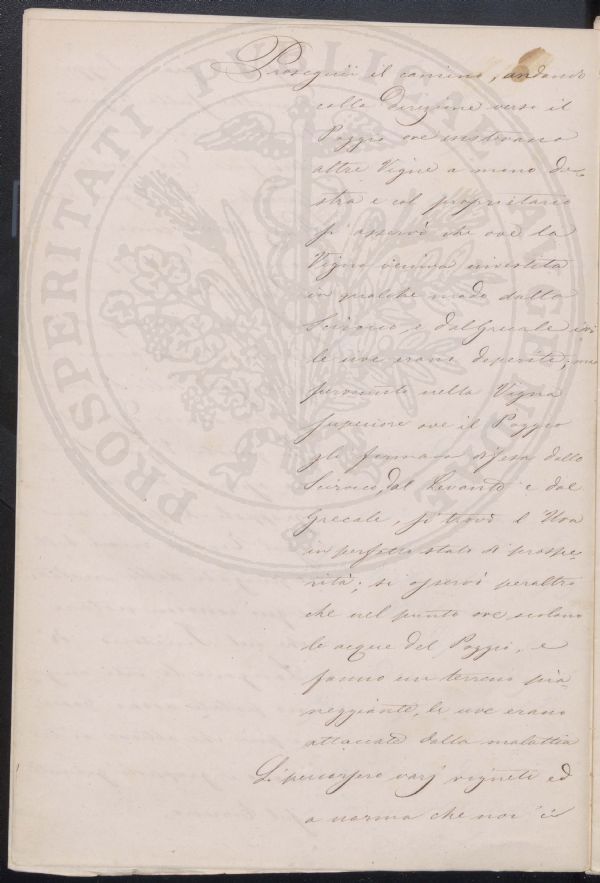 Proseguii il camino, andando
colla Direzione verso il
Poggio ove esistevano
altre Vigne a mano de-
stra e col proprietario
si osservò che ove la
Vigna veniva investita
in qualche modo dallo
Scirocco, e dal Grecale ivi
le uve erano deperite; ma
pervenuto nella Vigna
superiore ove il Poggio
gli formava difesa dallo
Scirocco, dal Levante e dal
Grecale, si trovò l'Uva
in perfetto stato di prospe-
rità; si osservò peraltro
che nel punto ove scolano
le acque del Poggio, e
fanno un terreno pia-
neggiante, le uve erano
attaccate dalla malattia
Si percorsero varj vigneti ed
a norma che noi ci
PROSPERITATI PUBLICAE AUGENDAE